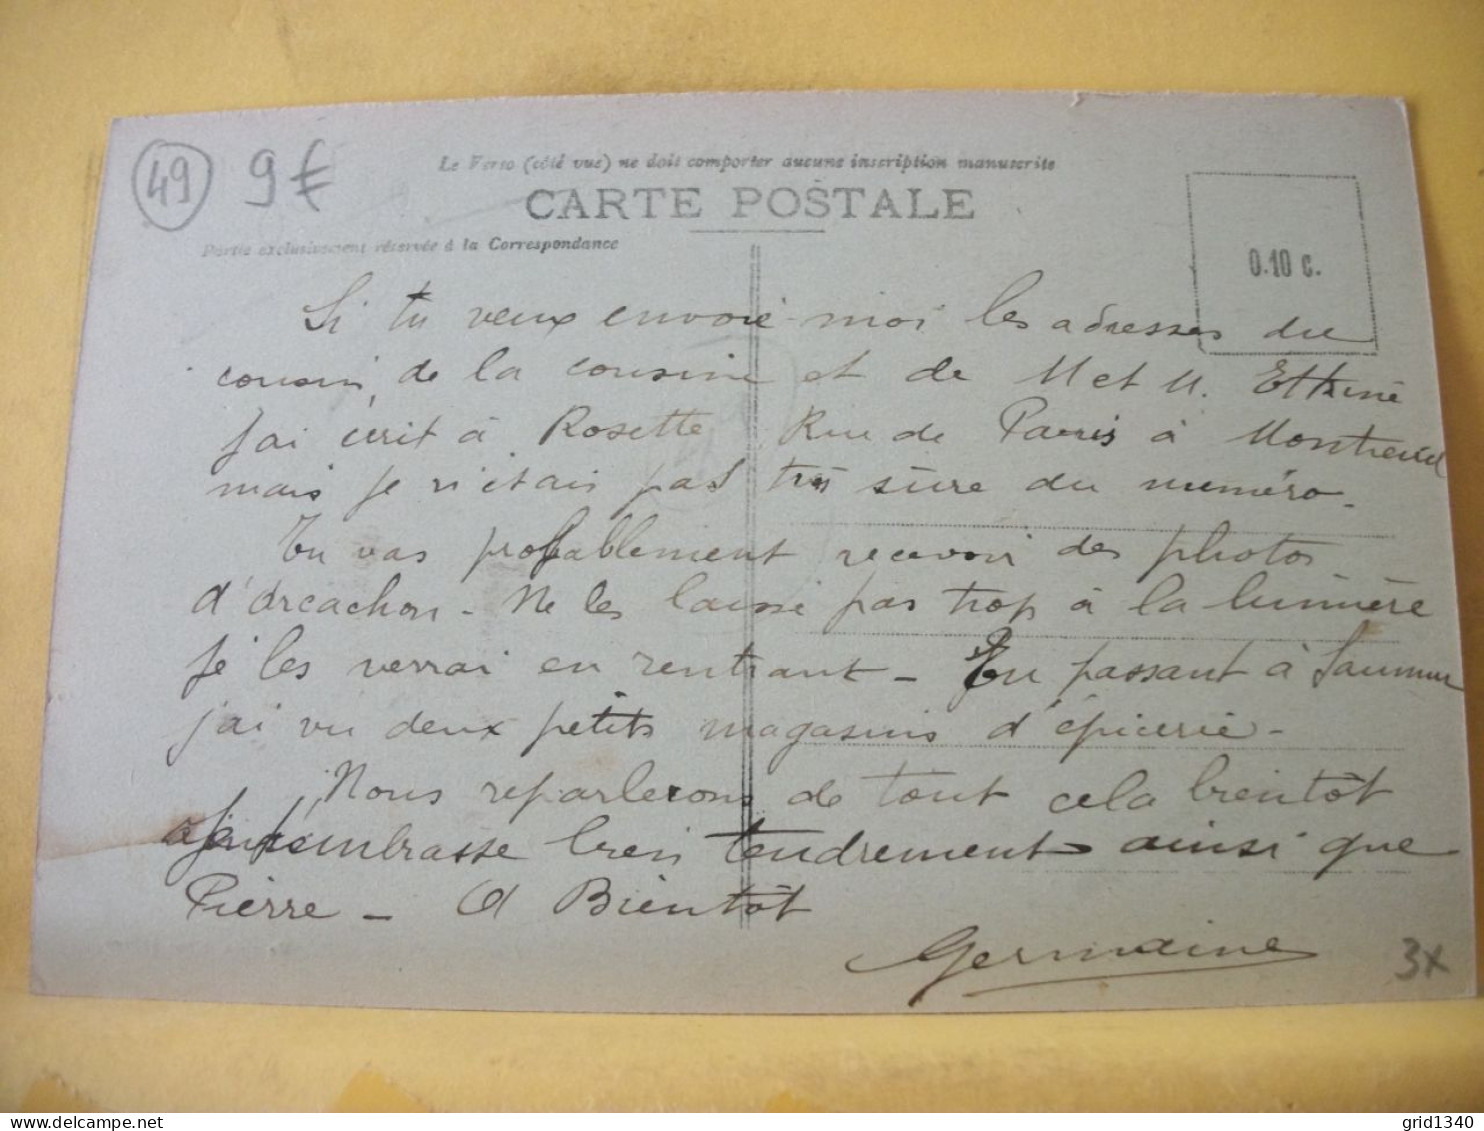 49 9€
Le Verso (côté vue) ne doit comporter aucune inscription manuscrite
CARTE POSTALE
Partie exclusivement réservée à la Correspondance
0.10 c.
Si tu veux envoie-moi les adresses du
cousin, de la cousine et de M et M.
J'ai écrit à Rosette Rue de Paris à Montreuil
mais je n'étais pas très sûre du numéro.
Tu vas probablement recevoir des photos
d'Arcachon - Ne les laisse pas trop à la lumière
je les verrai en rentrant - En passant à Saumur
j'ai vu deux petits magasins d'épicerie -
Nous reparlerons de tout cela bientôt
Je t'embrasse bien tendrement ainsi que
Pierre - A Bientôt
Germaine
3x
grid1340